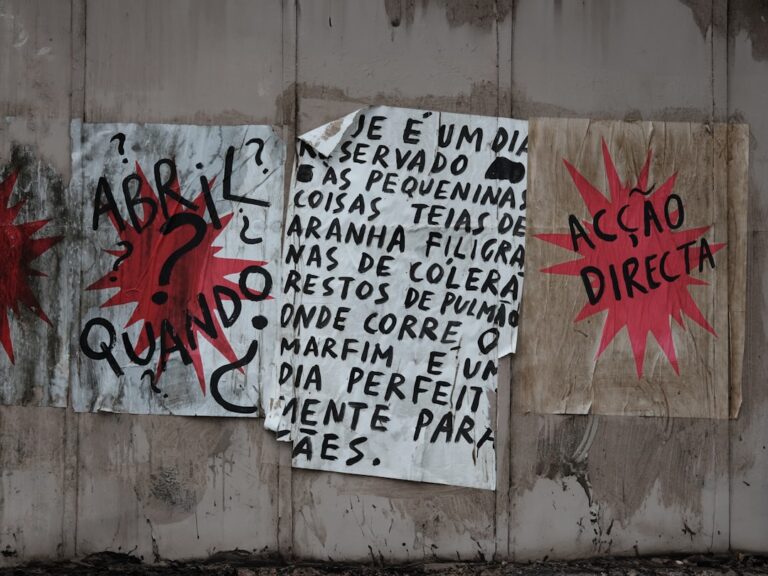 ABRIL
?
QUANDO?
JE É UM DIA
SERVADO
ÀS PEQUENINAS
COISAS TEIAS DE
ARANHA FILIGRA
NAS DE COLERA
RESTOS DE PULMÃO
ONDE CORRE O
MARFIM E UM
DIA PERFEIT
MENTE PARA
ÃES.
ACÇÃO
DIRECTA